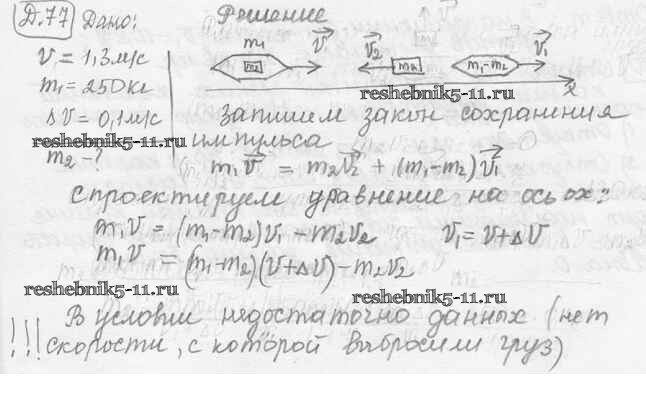 Д.77 Дано: Решение
v₁ = 1,3 м/с
m₁ = 250 кг
ΔV = 0,1 м/с
m₂ - ?
m₁ v₁ v₂ v₁
m₂ m₂ m₁-m₂
x
reshebnik5-11.ru
Запишем закон сохранения
reshebnik5-11.ru
импульса
m₁v = m₂v₂ + (m₁-m₂)v₁
Спроектируем уравнение на ось ox:
m₁v = (m₁-m₂)v₁ - m₂v₂ v₁ = v+ΔV
m₁v = (m₁-m₂)(v+ΔV) - m₂v₂
reshebnik5-11.ru reshebnik5-11.ru
!!! В условии недостаточно данных (нет
скорости, с которой выбросили груз)